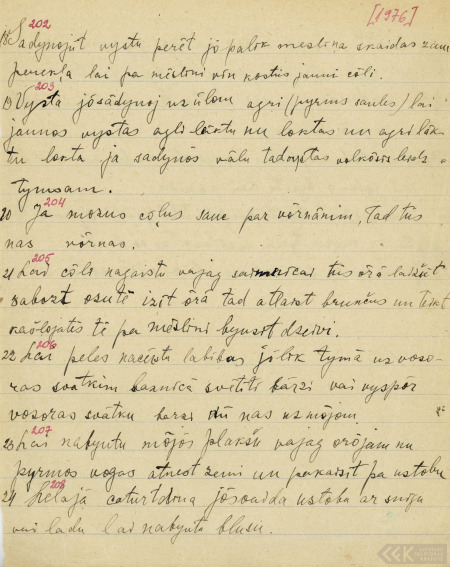 [1976]
202
18 Sadynojut vystu perēt jō palīk mesliņa skaidas zam
perekļa lai pa mēslini vin kostis jauni cōli.
203
19 Vysta jōsādynoj uz ūlom agri (pyrms saules) lai
jaunos vystas agli lāktu nu loktas un agri lāk
tu lokta ja sadynōs vālu tad vystas
tymsam.
204
20 Ja mozus cōļus sauc par vōrnānim, tad tūs
nas vōrnas.
205
21 Lai cōli nagaistu vajag saimnicai tūs ōrā laižūt
sabozt osutē izīt ōrā tad atlaist brunčus un teikt
naōlojatīs tē pa mēslini byusit dzeivi.
206
22 Lai peles naēstu labibas jōlīk tymā uz voso-
ras svātkim baznīcā svētīti bārzi vai vyspōr
vosoras svātku barzi kū nas uz mōjom
207
23 Lai nabyutu mōjōs plakšu vajag orōjam nu
pyrmos vogas atnest zemi un pakaisīt pa ustobu
208
24 Lelajā caturtdīna jōsvaida ustoba ar snīgu
vai ladu lai nabyutu blusu.